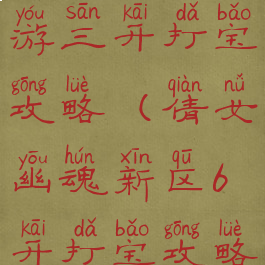 yóu sān kāi dǎ bǎo
游三开打宝
gōng lüè qiàn nǚ
攻略（倩女
yōu hún xīn qū
幽魂新区6
kāi dǎ bǎo gōng lüè
开打宝攻略